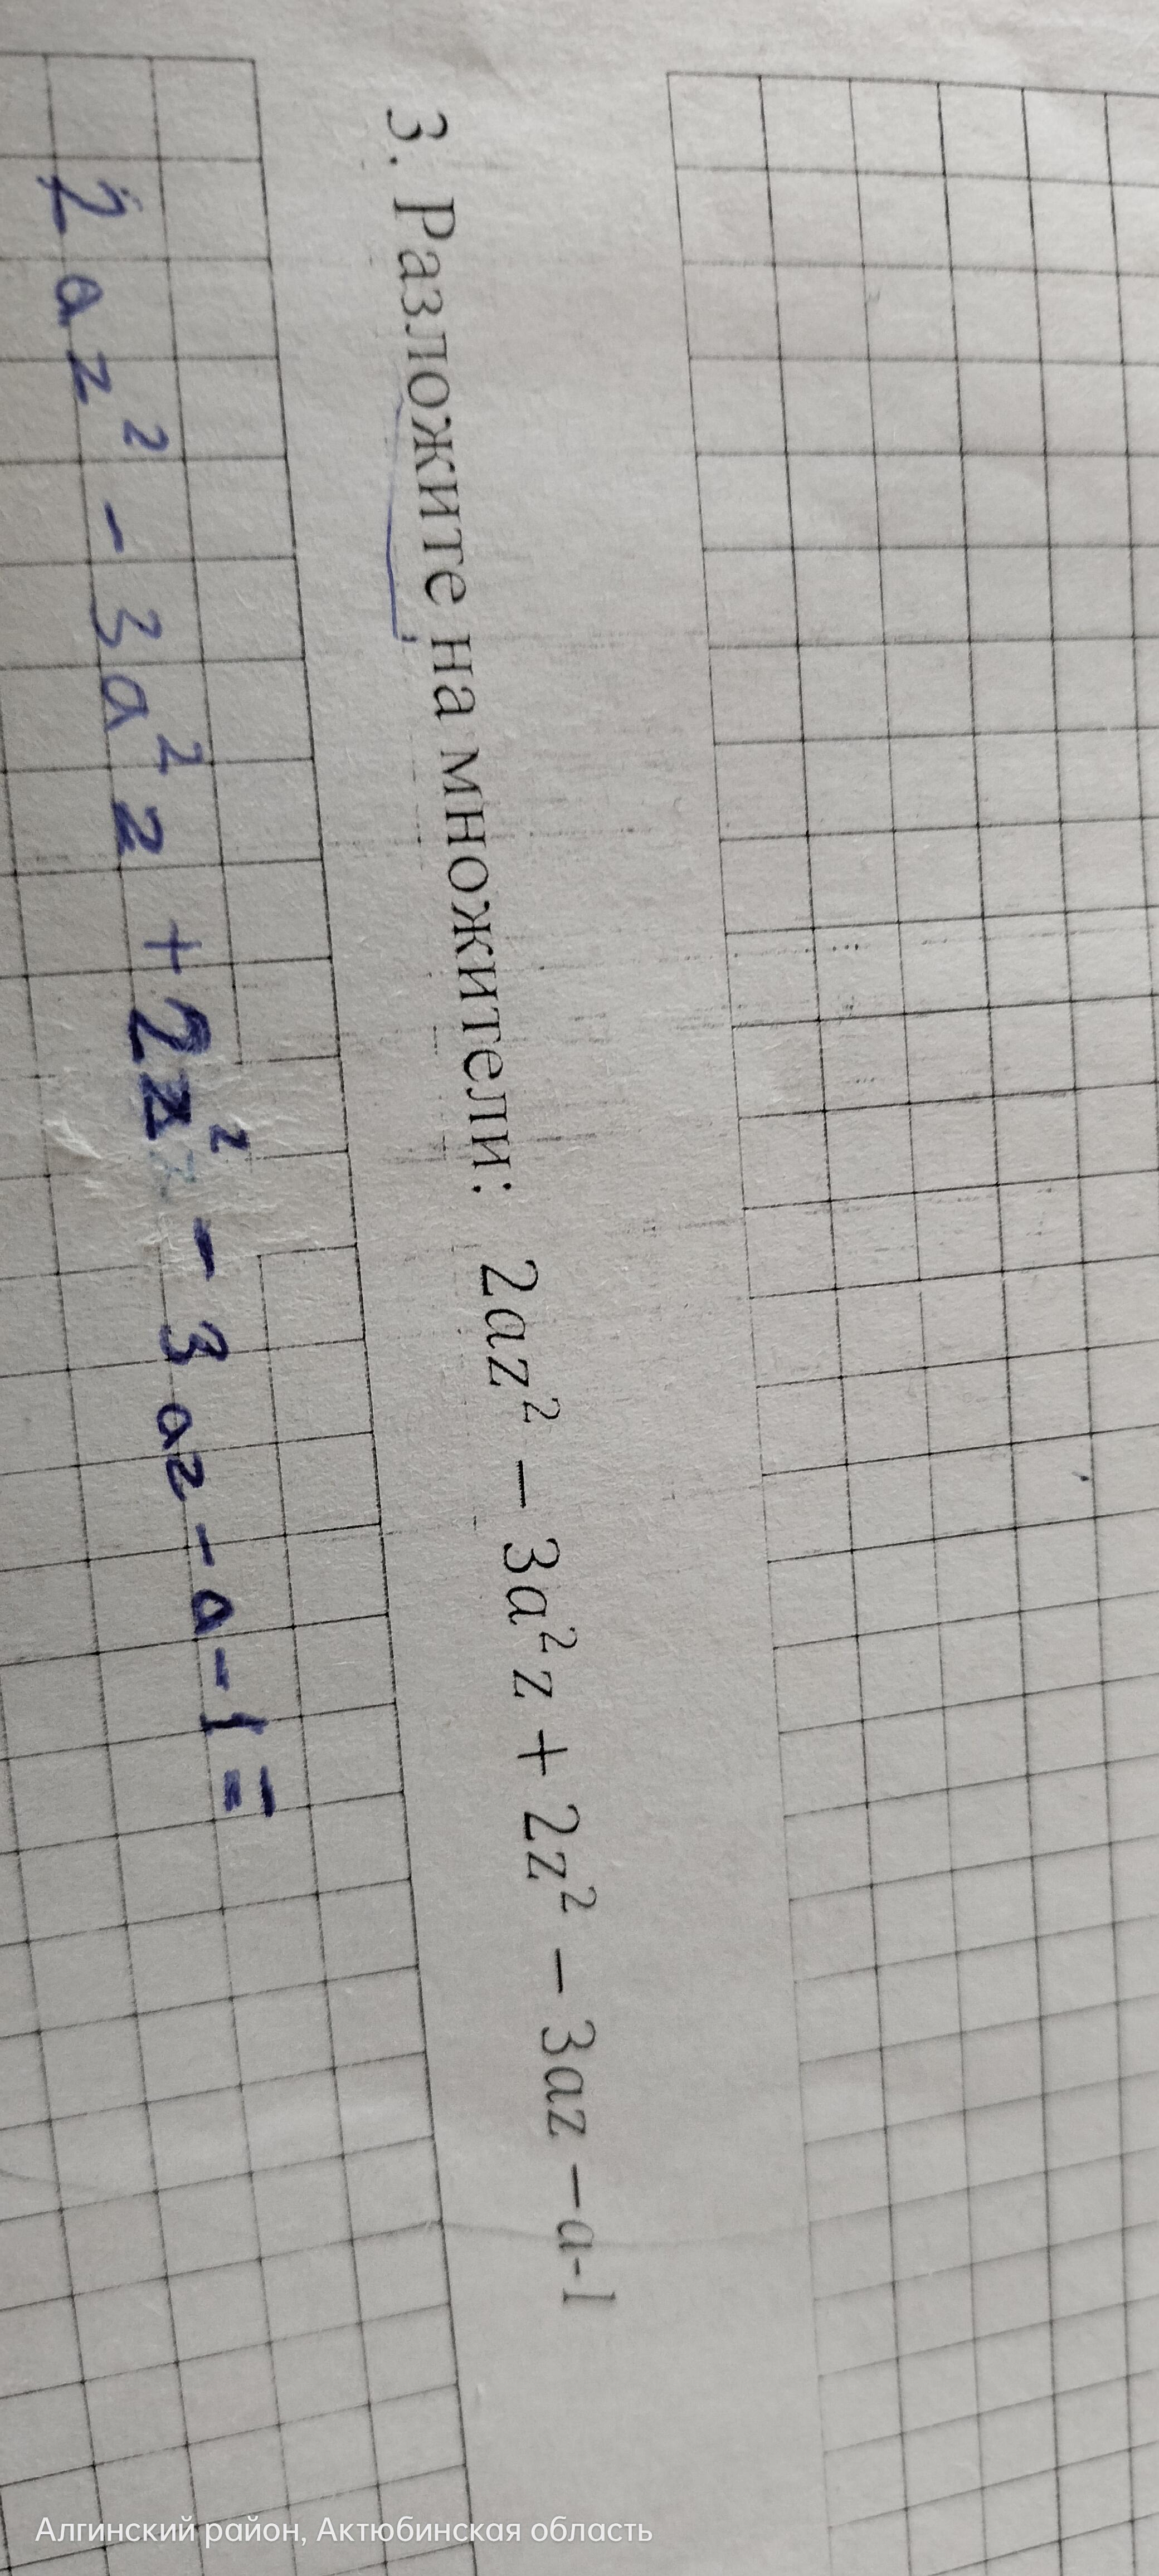 3. Разложите на множители: 2az² − 3a²z + 2z² − 3az − a-1
2az² - 3a²z + 2z² - 3az - a - 1 =
Алгинский район, Актюбинская область